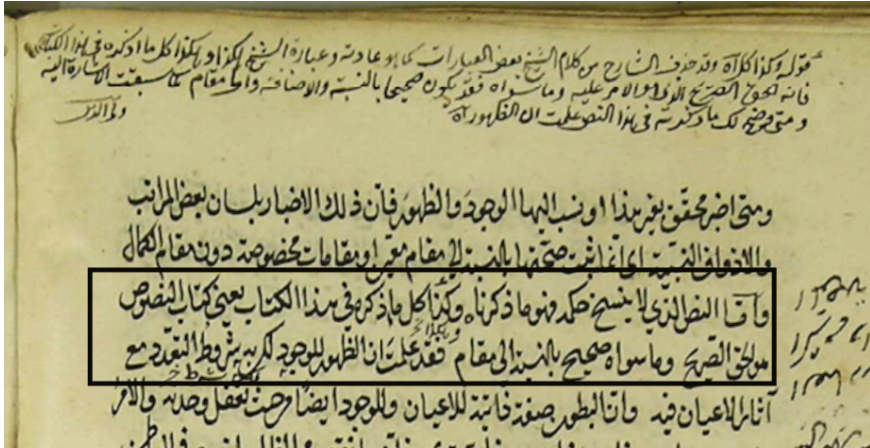 قوله وكذا كل اه وقد حذف الشارح من كلام الشيخ بعض العبارات كما هو عادته وعبارة الشيخ هكذا وهكذا كل ما اذكره في هذا الكتاب
فانه الحق الصريح الذي الامر عليه وما سواه فقد يكون صحيحا بالنسبة والاضافة والى مقام كما سبقت الاشارة اليه
ومتى وضح لك ما ذكرته في هذا النص علمت ان الظهور اه
ومتى اخبر محقق بغير هذا او نسب اليها الوجود والظهور فان ذلك الاخبار بلسان بعض المراتب
والاذواق النسبية اى انما ثبت صحتها بالنسبة الى مقام معين او مقامات مخصوصة دون مقام الكمال
واما النص الذي لا ينسخ حكمه فهو ما ذكرناه وكذا كل ما ذكره في هذا الكتاب يعني كتاب النصوص
هو الحق الصريح وما سواه صحيح بالنسبة الى مقام فقد علمت ان الظهور للوجود لكن بشروط التعدد مع
آثار الاعيان فيه وان البطون صفة ذاتية للاعيان وللوجود ايضا من حيث تعقل وحدته والامر